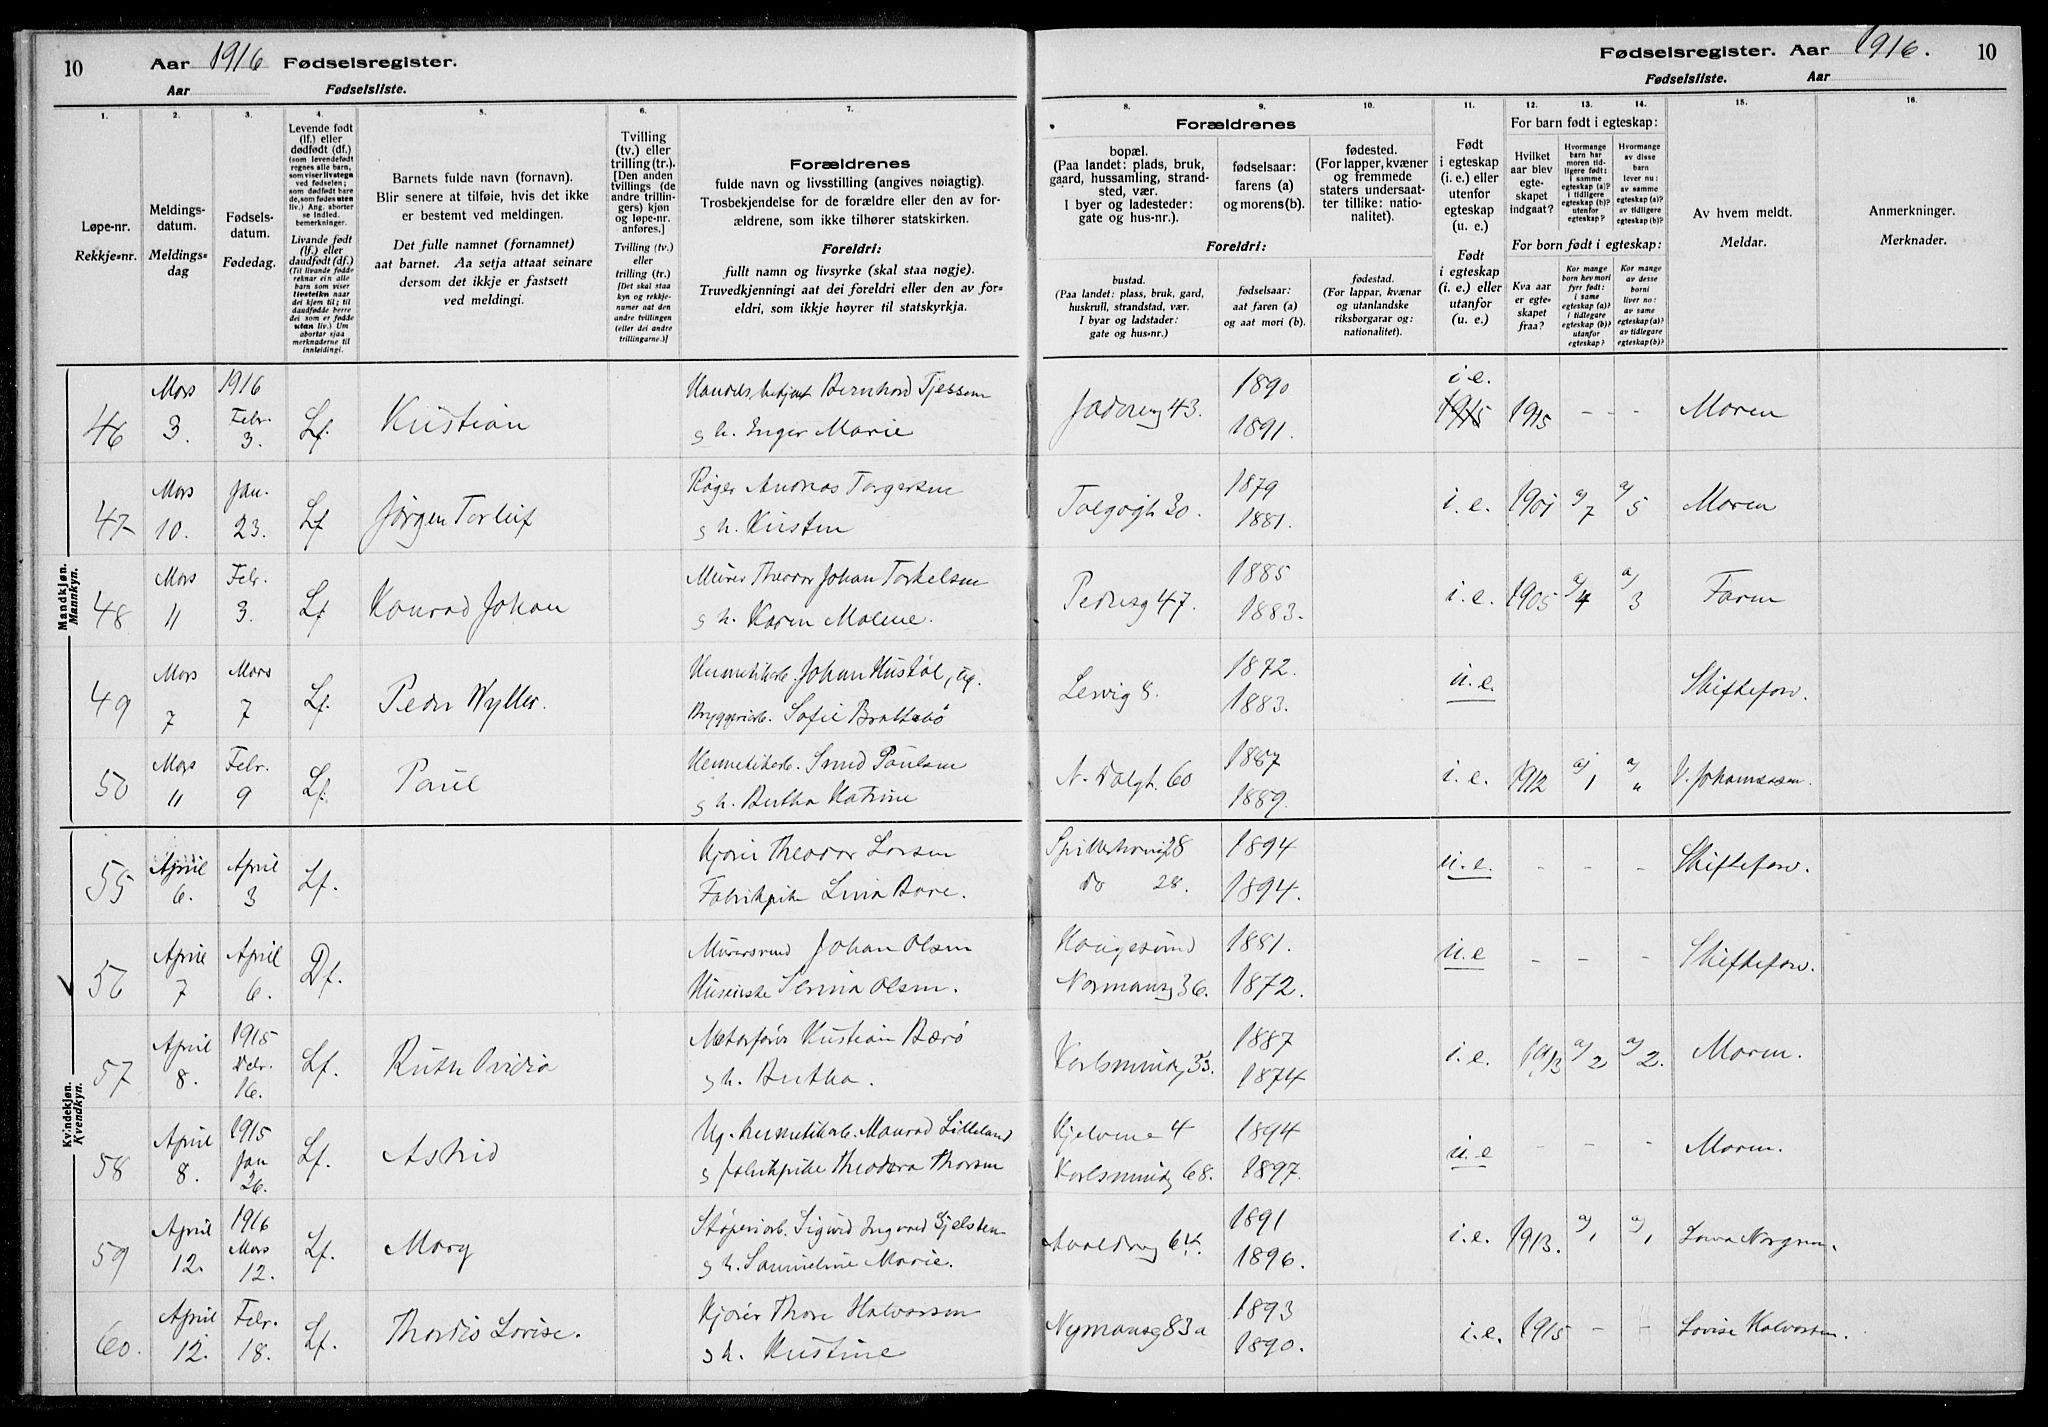 10 Aar 1916 Fødselsregister.
Aar Fødselsliste.
Fødselsregister. Aar 1916. 10
Fødselsliste. Aar
1. 2. 3. 4. 5. 6. 7. 8. 9. 10. 11. 12. 13. 14. 15. 16.
Løpe-nr.
Rekkje-nr.
Meldings-
datum.
Meldings-
dag
Fødsels-
datum.
Fødedag.
Levende født
(lf.) eller
dødfødt (df.)
(som levendefødt
regnes alle barn,
som viser livstegn
ved fødselen;
som dødfødt bare
de, som fødes uten
liv.) Ang. aborter
se indled.
bemerkninger.
Livande født
(lf.) eller
daudfødt (df.)
(Til livande fødde
reknar ein alle
barn som viser
livsteikn naar
dei kjem til; til
daudfødde berre
dei som er fødde
utan liv.) Um
abortar sjaa
merknaderne til
innleidingi.
Barnets fulde navn (fornavn).
Blir senere at tilføie, hvis det ikke
er bestemt ved meldingen.
Det fulle namnet (fornamnet)
aat barnet. Aa setja attaat seinare
dersom det ikkje er fastsett
ved meldingi.
Tvilling
(tv.) eller
trilling (tr.).
[Den anden
tvillings (de
andre trillin-
gers) kjøn
og løpe-nr.
anføres.]
Tvilling (tv.)
eller
trilling (tr.)
[Det skal staa
kyn og rekkje-
numer aat den
andre tvillingen
(eller dei andre
trillingarne.)]
Forældrenes
fulde navn og livsstilling (angives nøiagtig).
Trosbekjendelse for de forældre eller den av for-
ældrene, som ikke tilhører statskirken.
Foreldri:
fullt namn og livsyrke (skal staa nøgje).
Truvedkjenningi aat dei foreldri eller den av for-
eldri, som ikkje høyrer til statskyrkja.
Forældrenes
bopæl.
(Paa landet: plads, bruk,
gaard, hussamling, strand-
sted, vær.
I byer og ladesteder:
gate og hus-nr.).
fødselsaar:
farens (a)
og morens (b).
fødested.
(For lapper, kvæner
og fremmede
staters undersaat-
ter tillike: natio-
nalitet).
Foreldri:
bustad.
(Paa landet: plass, bruk, gard,
huskrull, strandstad, vær.
I byar og ladstader:
gate og hus-nr.)
fødselsaar:
aat faren (a)
og aat mori (b).
fødestad.
(For lappar, kvænar
og utanlandske
riksborgarar og:
nationalitet).
Født
i egteskap
(i. e.) eller
utenfor
egteskap
(u. e.)
Født
i egteskap
(i. e.) eller
utanfor
egteskap
(u. e.)
For barn født i egteskap:
Hvilket
aar blev
egte-
skapet
indgaat?
Hvormange
barn har
moren tid-
ligere født:
i samme
egteskap (a)?
i tidligere
egteskap (b)?
utenfor
egteskap?
Hvormange
av disse
barn
lever nu:
av samme
egteskap (a)?
av tidligere
egteskap (b)?
For born født i egteskap:
Kva aar
er egte-
skapet
fraa?
Kor mange
born hev mori
fyrr født:
i same
egteskap (a)?
i tidlegare
egteskap (b)?
utanfor
egteskap?
Kor mange
av desse
borni
liver no:
av same
egteskap (a)?
av tidlegare
egteskap (b)?
Av hvem meldt.
Meldar.
Anmerkninger.
Merknader.
Mandkjøn.
Mannkyn.
46 Mars 3. 1916 Febr. 3. Lf. Kristian Bernhard Tjessem 1890 i.e. 1915 1915 - - - Moren
g. h. Inger Marie 43. 1891.
47 Mars 10. Jan. 23. Lf Jørgen Torleif Andreas Torgersen 30. 1879 i. e. 1901 a/7 a/5 Moren
g. h. Kirsten 1881.
48 Mars 11 Febr. 3. Lf Konrad Johan Murer Theodor Johan Torkelsen Pedersg 47. 1885 i. e. 1905 a/4 a/3 Faren
g. h. Karen Malene. 1883.
49 Mars 7 Mars 7 Lf. Peder Wyller. Hermetikarb. Johan Hustøl, Ug. Lervig 8. 1872. u. e. Skifteforv.
Bryggeriarb. Sofie Brattebø 1883.
50 Mars 11 Febr. 9 Lf. Paul Hermetikarb. Svend Paulsen N. Dalgt. 60 1887 i. e. 1912 a/1 a/" V. Johannessen.
g. h. Bertha Katrine 1889.
Kvindekjøn.
Kvendkyn.
55 April 6. April 3 Lf. Kjører Theodor Larsen 28 1894 u. e. - - - Skifteforv.
Fabrikpike Lina Bore. Do 28. 1894.
56 April 7 April 6. Df. Murersvend Johan Olsen Haugesund 1881. u. e - - - Skifteforv.
Serina Olsen. Normansg 36. 1872.
57 April 8. 1915 Decbr. 16. Lf. Ruth Ovidia Motorfører Kristian Bærø Karlsminneg 33. 1887 i. e. 1913 a/2 a/2. Moren.
g. h. Bertha. 1874
58 April 8. 1915 Jan 26. Lf. Astrid Ug. hermetikarb. Monrad Lilleland Kjelvene 4 1894 u. e - - - Moren.
g fabrikpike Theodora Thorsen Karlsminneg 68. 1897.
59 April 12. 1916 Mars 12. Lf. Mary Støperiarb. Sigurd Ingvard Gjelsten 1891 i. e. 1913. a/1 a/1
g. h. Sammeline Marie. 1896.
60. April 12. Febr. 18. Lf. Thordis Lovise. Kjører Thore Halvorsen Nymansg 83a 1893 i. e. 1915 - Lovise Halvorsen.
g. h. Kristine 1890.